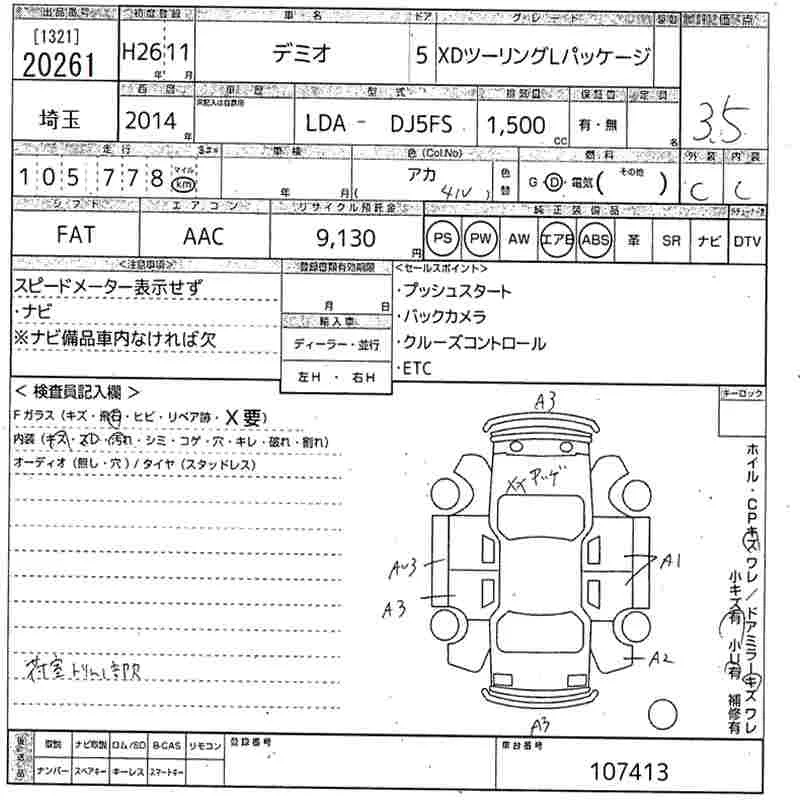 出品番号 初度登録 車・名 ドア グレード
[1321]
20261 H26 11 デミオ 5 XDツーリングLパッケージ
年 月
西暦 車歴 型式 排気量 保証書 定員
未記入は自家用
埼玉 2014年 LDA - DJ5FS 1,500cc 有・無 名 3.5
走行 車検 色(Col.No) 燃料 外装 内装
105778 マイル km 年 月 アカ ( 41V ) 色替 G・D・電気( その他 ) C C
シフト エアコン リサイクル預託金 純正装備品
FAT AAC 9,130円 PS PW AW エアB ABS 革 SR ナビ DTV
<注意事項> 登録書類有効期限 <セールスポイント>
スピードメーター表示せず
・ナビ
※ナビ備品車内なければ欠
月 日
輸入車
ディーラー・並行
左H ・ 右H
・プッシュスタート
・バックカメラ
・クルーズコントロール
・ETC
< 検査員記入欄 >
Fガラス(キズ・飛石・ヒビ・リペア跡・X要)
内装(キズ・スレ・汚れ・シミ・コゲ・穴・キレ・破れ・割れ)
オーディオ(無し・穴)/タイヤ(スタッドレス)
キーロック
A3
XX アッゲ
AU3
A1
A3
A2
A3
ホイル・CPキズ ワレ/ドアミラーキズ ワレ
小キズ有 小U有 補修有
荷室トリム
後送品 取説 ナビ取説 ロム/SD B-CAS リモコン 登録番号 車台番号
ナンバー スペアキー キーレス スマートキー 107413